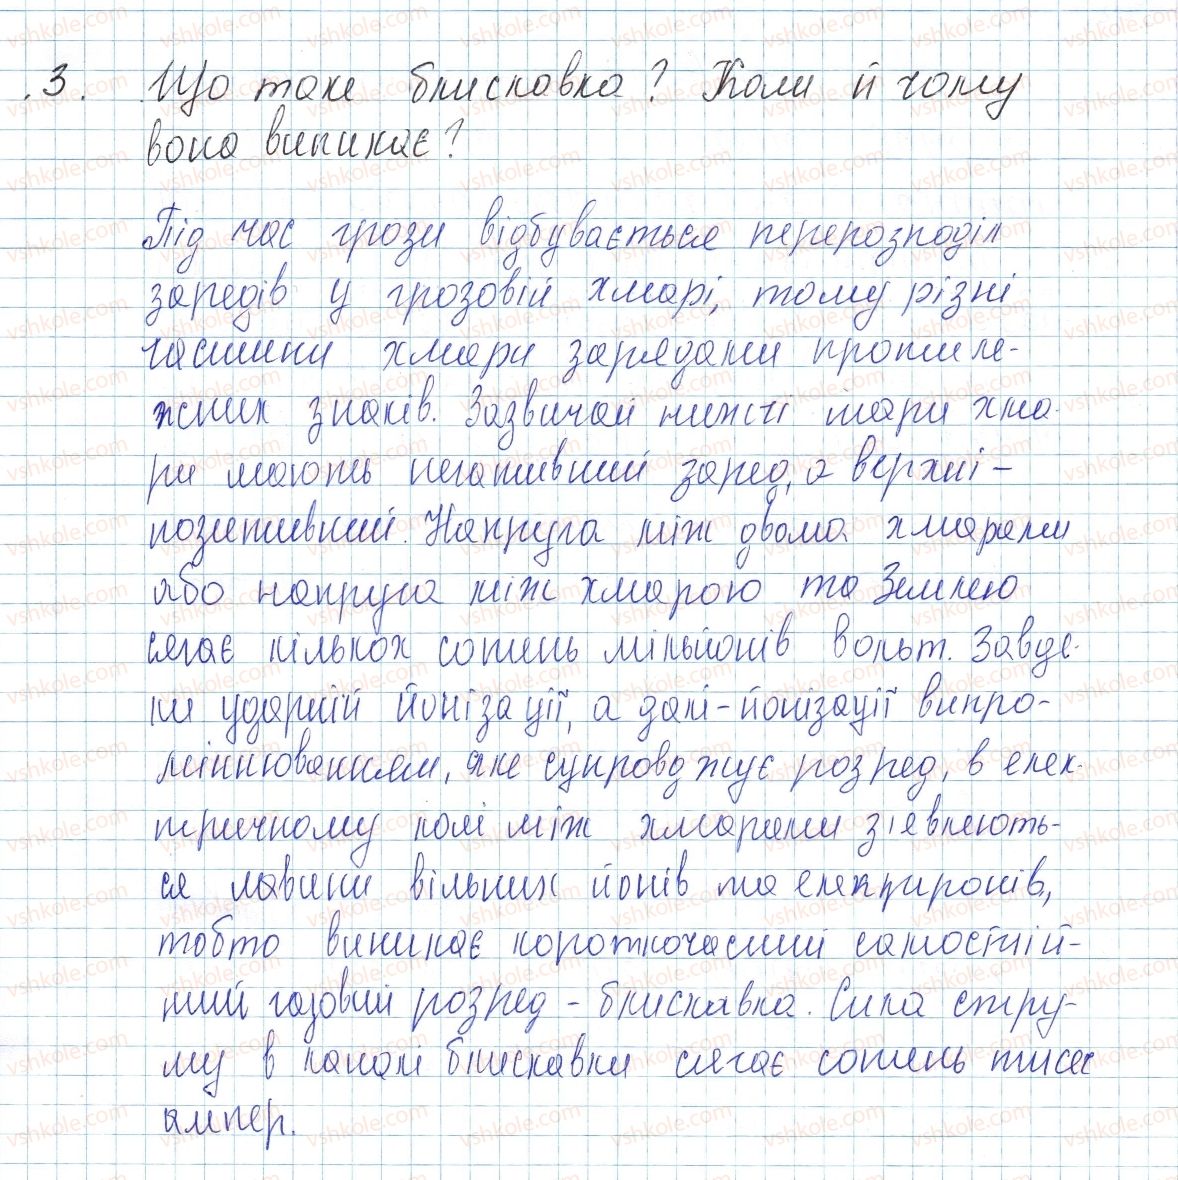 3. Що таке блискавка? Коли й чому
вона виникає?
Під час грози відбувається перерозподіл
зарядів у грозовій хмарі, тому різні
частини хмари заряджани протиле-
жних знаків. Зазвичай нижні шари хма-
ри мають негативний заряд, а верхні -
позитивний. Напруга між двома хмарами
або напруга між хмарою та Землею
сягає кількох сотень мільйонів вольт. Завдя-
ки ударній йонізації, а далі - йонізації випро-
мінюванням, яке супроводжує розряд, в елек-
тричному полі між хмарами з'являють-
ся лавини вільних йонів та електронів,
тобто виникає короткочасний самостій-
ний газовий розряд - блискавка. Сила стру-
му в каналі блискавки сягає сотень тисяч
ампер.